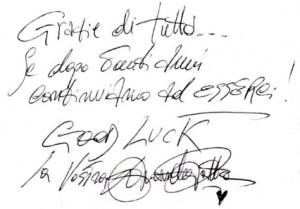 Grazie di tutto...
Se dopo tanti anni
continuiamo ad esserci!
GOOD LUCK
la vostra